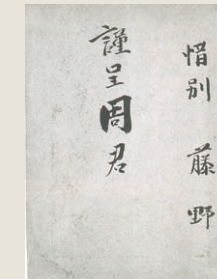 惜别
藤野
謹呈周君